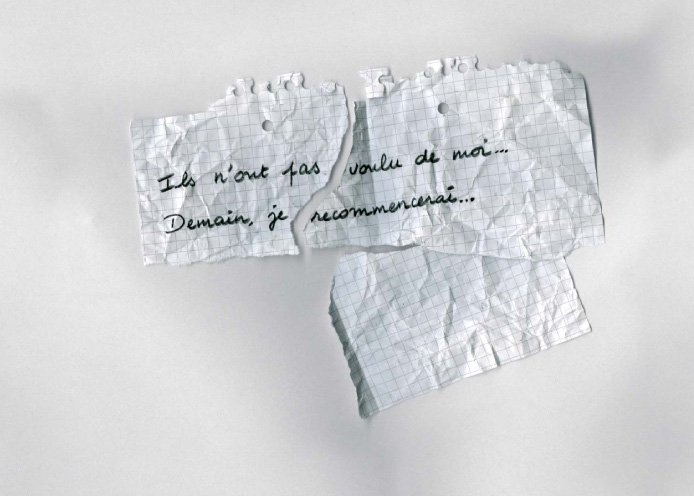 Ils n'ont pas voulu de moi...
Demain, je recommencerai...